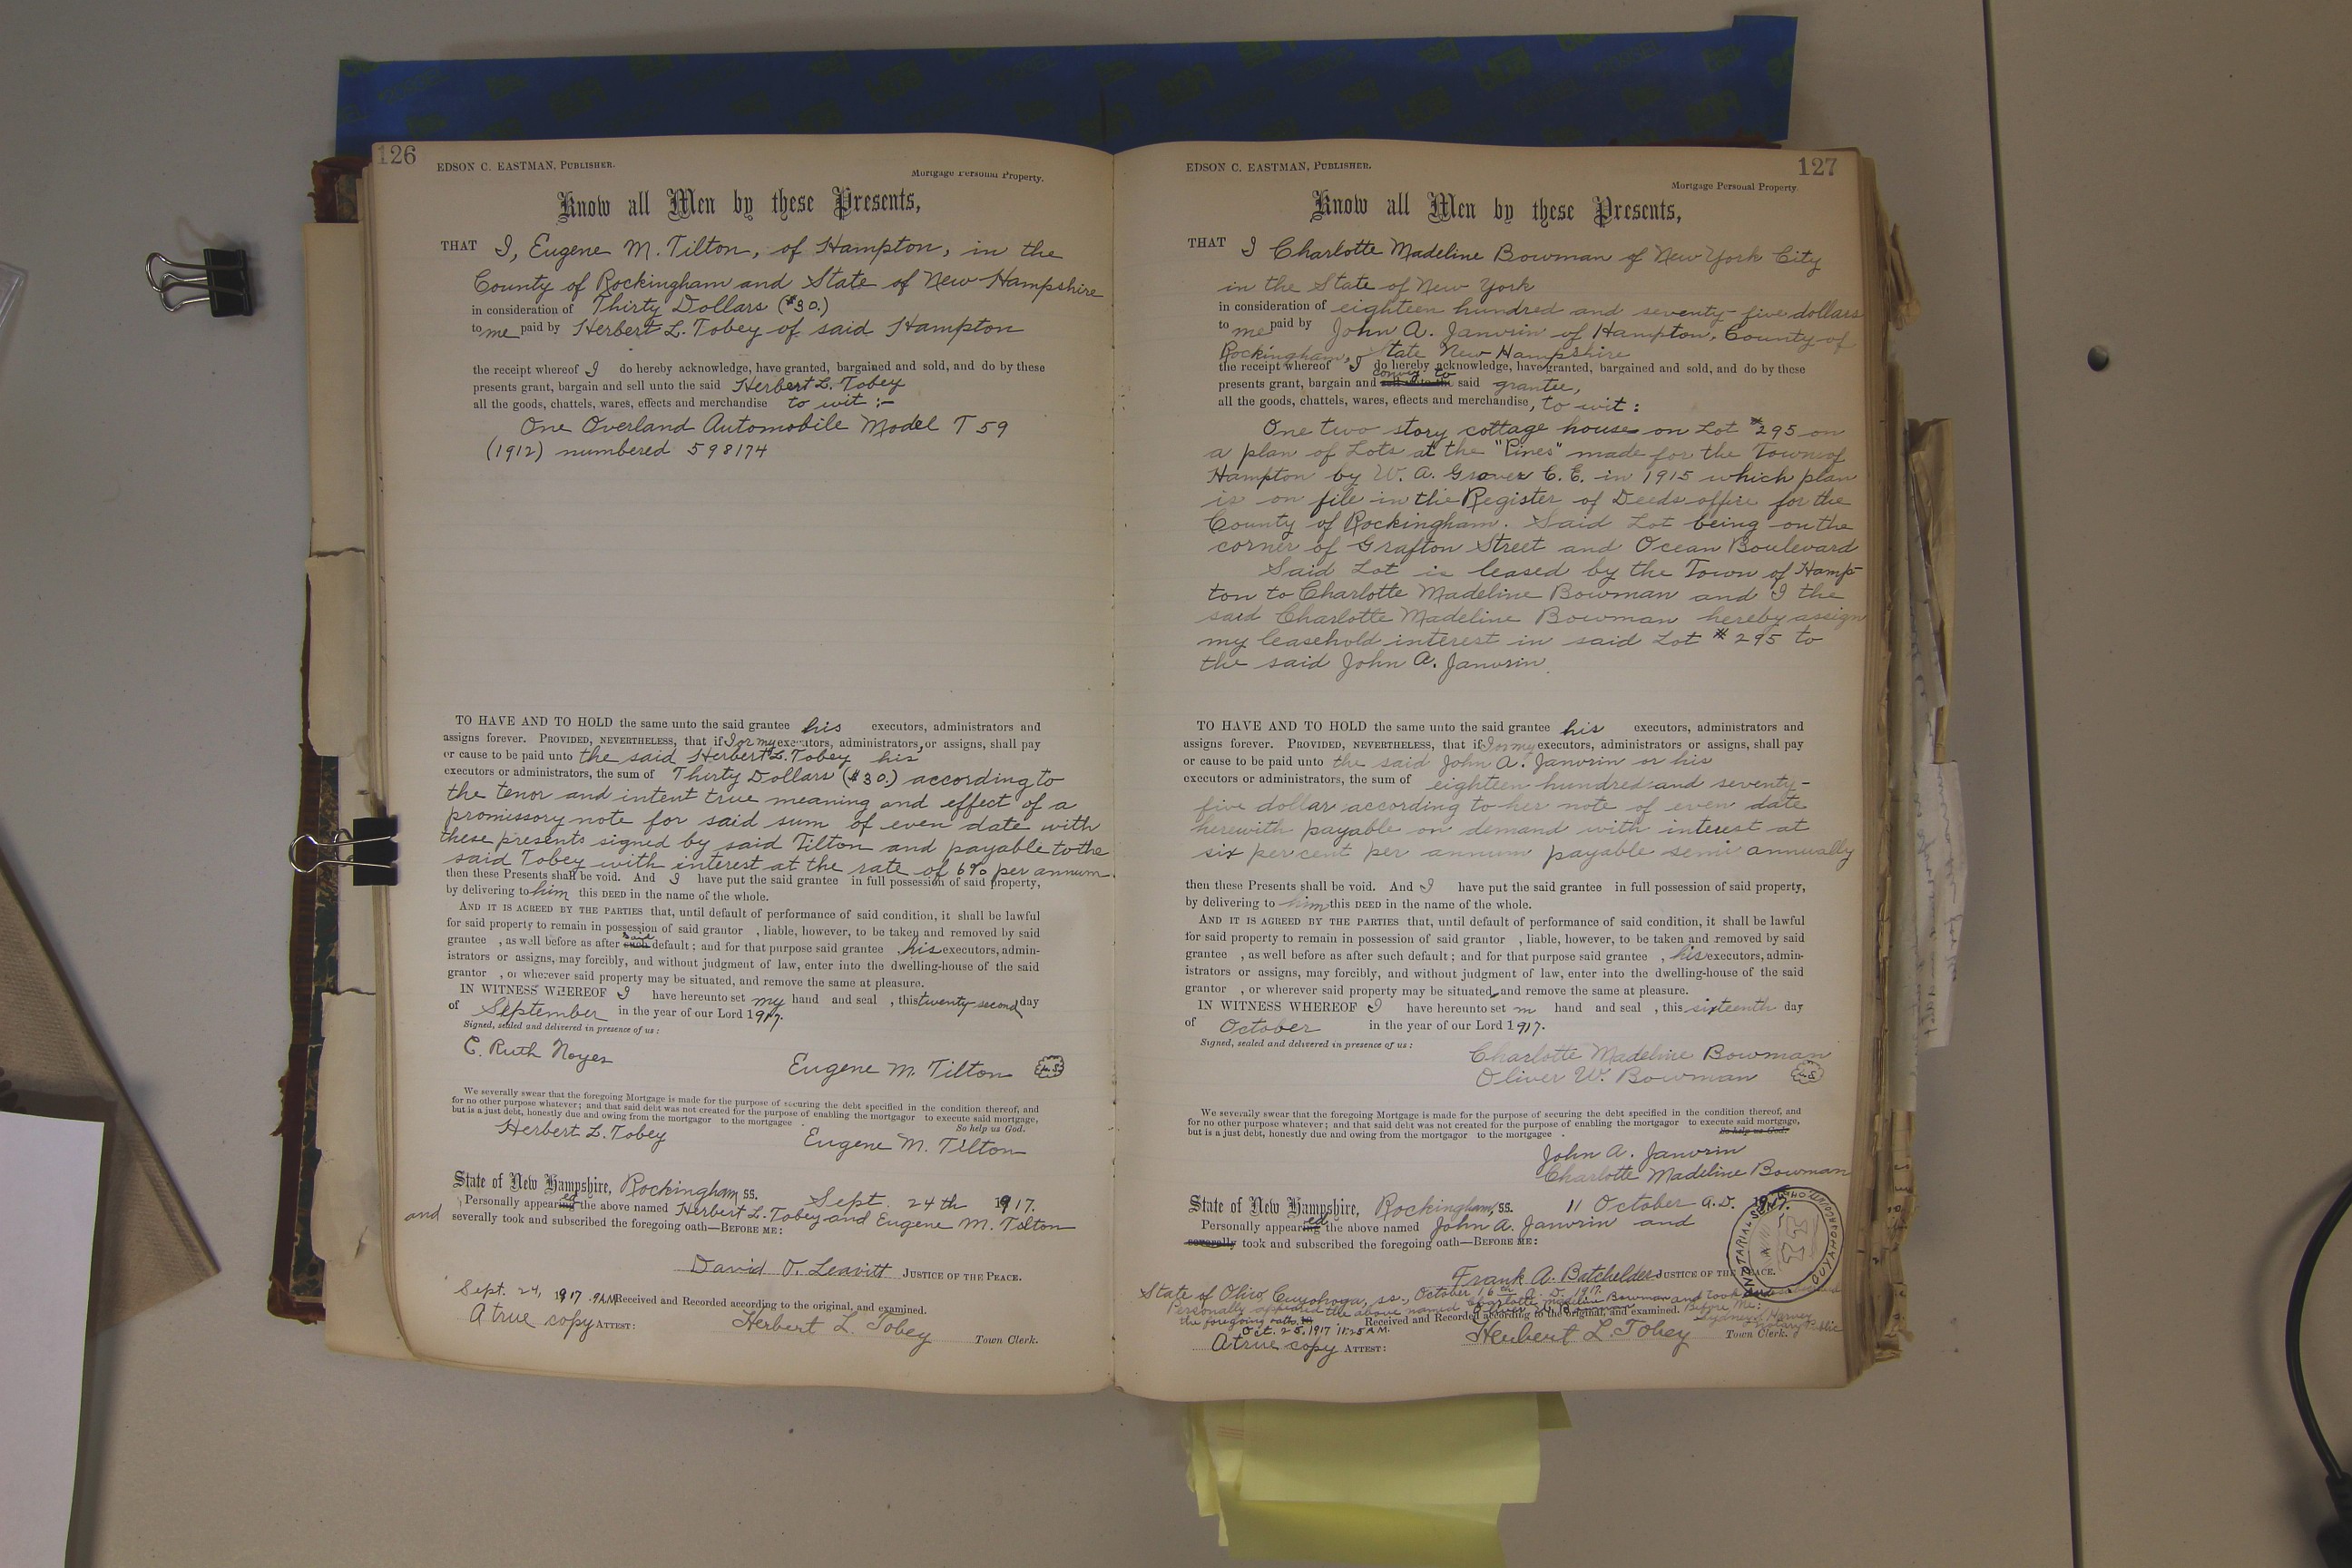 126
EDSON C. EASTMAN, PUBLISHER.
Mortgage Personal Property.
Know all Men by these Presents,
THAT I, Eugene M. Tilton, of Hampton, in the
County of Rockingham and State of New Hampshire
in consideration of Thirty Dollars ($30.)
to me paid by Herbert L. Tobey of said Hampton
the receipt whereof I do hereby acknowledge, have granted, bargained and sold, and do by these
presents grant, bargain and sell unto the said Herbert L. Tobey
all the goods, chattels, wares, effects and merchandise to wit :-
One Overland Automobile Model T 59
(1912) numbered 598174
TO HAVE AND TO HOLD the same unto the said grantee his executors, administrators and
assigns forever. PROVIDED, NEVERTHELESS, that if I or my executors, administrators, or assigns, shall pay
or cause to be paid unto the said Herbert L. Tobey his
executors or administrators, the sum of Thirty Dollars ($30.) according to
the tenor and intent true meaning and effect of a
promissory note for said sum of even date with
these presents signed by said Tilton and payable to the
said Tobey with interest at the rate of 6% per annum.
then these Presents shall be void. And I have put the said grantee in full possession of said property,
by delivering to him this DEED in the name of the whole.
AND IT IS AGREED BY THE PARTIES that, until default of performance of said condition, it shall be lawful
for said property to remain in possession of said grantor , liable, however, to be taken and removed by said
grantee , as well before as after such said default ; and for that purpose said grantee , his executors, admin-
istrators or assigns, may forcibly, and without judgment of law, enter into the dwelling-house of the said
grantor , or wherever said property may be situated, and remove the same at pleasure.
IN WITNESS WHEREOF I have hereunto set my hand and seal , this twenty-second day
of September in the year of our Lord 1917.
Signed, sealed and delivered in presence of us :
C. Ruth Noyes
Eugene M. Tilton L.S.
We severally swear that the foregoing Mortgage is made for the purpose of securing the debt specified in the condition thereof, and
for no other purpose whatever ; and that said debt was not created for the purpose of enabling the mortgagor to execute said mortgage,
but is a just debt, honestly due and owing from the mortgagor to the mortgagee .
So help us God.
Herbert L. Tobey Eugene M. Tilton
State of New Hampshire, Rockingham SS. Sept. 24th 1917.
Personally appearing ed the above named Herbert L. Tobey and Eugene M. Tilton
and severally took and subscribed the foregoing oath—BEFORE ME :
David O. Leavitt JUSTICE OF THE PEACE.
Sept. 24, 1917 . 9 A.M. Received and Recorded according to the original, and examined.
A true copy ATTEST: Herbert L. Tobey Town Clerk.
127
EDSON C. EASTMAN, PUBLISHER.
Mortgage Personal Property.
Know all Men by these Presents,
THAT I Charlotte Madeline Bowman of New York City
in the State of New York
in consideration of eighteen hundred and seventy-five dollars
to me paid by John A. Janvrin of Hampton, County of
Rockingham, State New Hampshire
the receipt whereof I do hereby acknowledge, have granted, bargained and sold, and do by these
presents grant, bargain and sell unto the convey to said grantee,
all the goods, chattels, wares, effects and merchandise, to wit :
One two story cottage house on Lot #295 on
a plan of Lots at the "Pines" made for the Town of
Hampton by W. A. Grover C. E. in 1915 which plan
is on file in the Register of Deeds office for the
County of Rockingham. Said Lot being on the
corner of Grafton Street and Ocean Boulevard
Said Lot is leased by the Town of Hamp-
ton to Charlotte Madeline Bowman and I the
said Charlotte Madeline Bowman hereby assign
my leasehold interest in said Lot #295 to
the said John A. Janvrin.
TO HAVE AND TO HOLD the same unto the said grantee his executors, administrators and
assigns forever. PROVIDED, NEVERTHELESS, that if I or my executors, administrators or assigns, shall pay
or cause to be paid unto the said John A. Janvrin or his
executors or administrators, the sum of eighteen hundred and seventy-
five dollar according to her note of even date
herewith payable on demand with interest at
six per cent per annum payable semi annually
then these Presents shall be void. And I have put the said grantee in full possession of said property,
by delivering to him this DEED in the name of the whole.
AND IT IS AGREED BY THE PARTIES that, until default of performance of said condition, it shall be lawful
for said property to remain in possession of said grantor , liable, however, to be taken and removed by said
grantee , as well before as after such default ; and for that purpose said grantee , his executors, admin-
istrators or assigns, may forcibly, and without judgment of law, enter into the dwelling-house of the said
grantor , or wherever said property may be situated, and remove the same at pleasure.
IN WITNESS WHEREOF I have hereunto set m hand and seal , this sixteenth day
of October in the year of our Lord 1917.
Signed, sealed and delivered in presence of us :
Charlotte Madeline Bowman
Oliver W. Bowman L.S.
We severally swear that the foregoing Mortgage is made for the purpose of securing the debt specified in the condition thereof, and
for no other purpose whatever ; and that said debt was not created for the purpose of enabling the mortgagor to execute said mortgage,
but is a just debt, honestly due and owing from the mortgagor to the mortgagee .
So help us God.
John A. Janvrin
Charlotte Madeline Bowman
State of New Hampshire, Rockingham, SS. 11 October A.D. 1917.
Personally appearing ed the above named John A. Janvrin and
severally took and subscribed the foregoing oath—BEFORE ME :
Frank A. Batchelder JUSTICE OF THE PEACE.
NOTARIAL CUYAHOGA COUNTY OHIO
State of Ohio Cuyahoga, ss., October 16th A. D. 1917.
Personally appeared the above named Charlotte Madeline Bowman and took and subscribed
the foregoing oath. Before Me:
Received and Recorded according to the original, and examined.
Notary Public
Oct. 25, 1917 11:25 A.M.
A true copy ATTEST: Herbert L. Tobey Town Clerk.